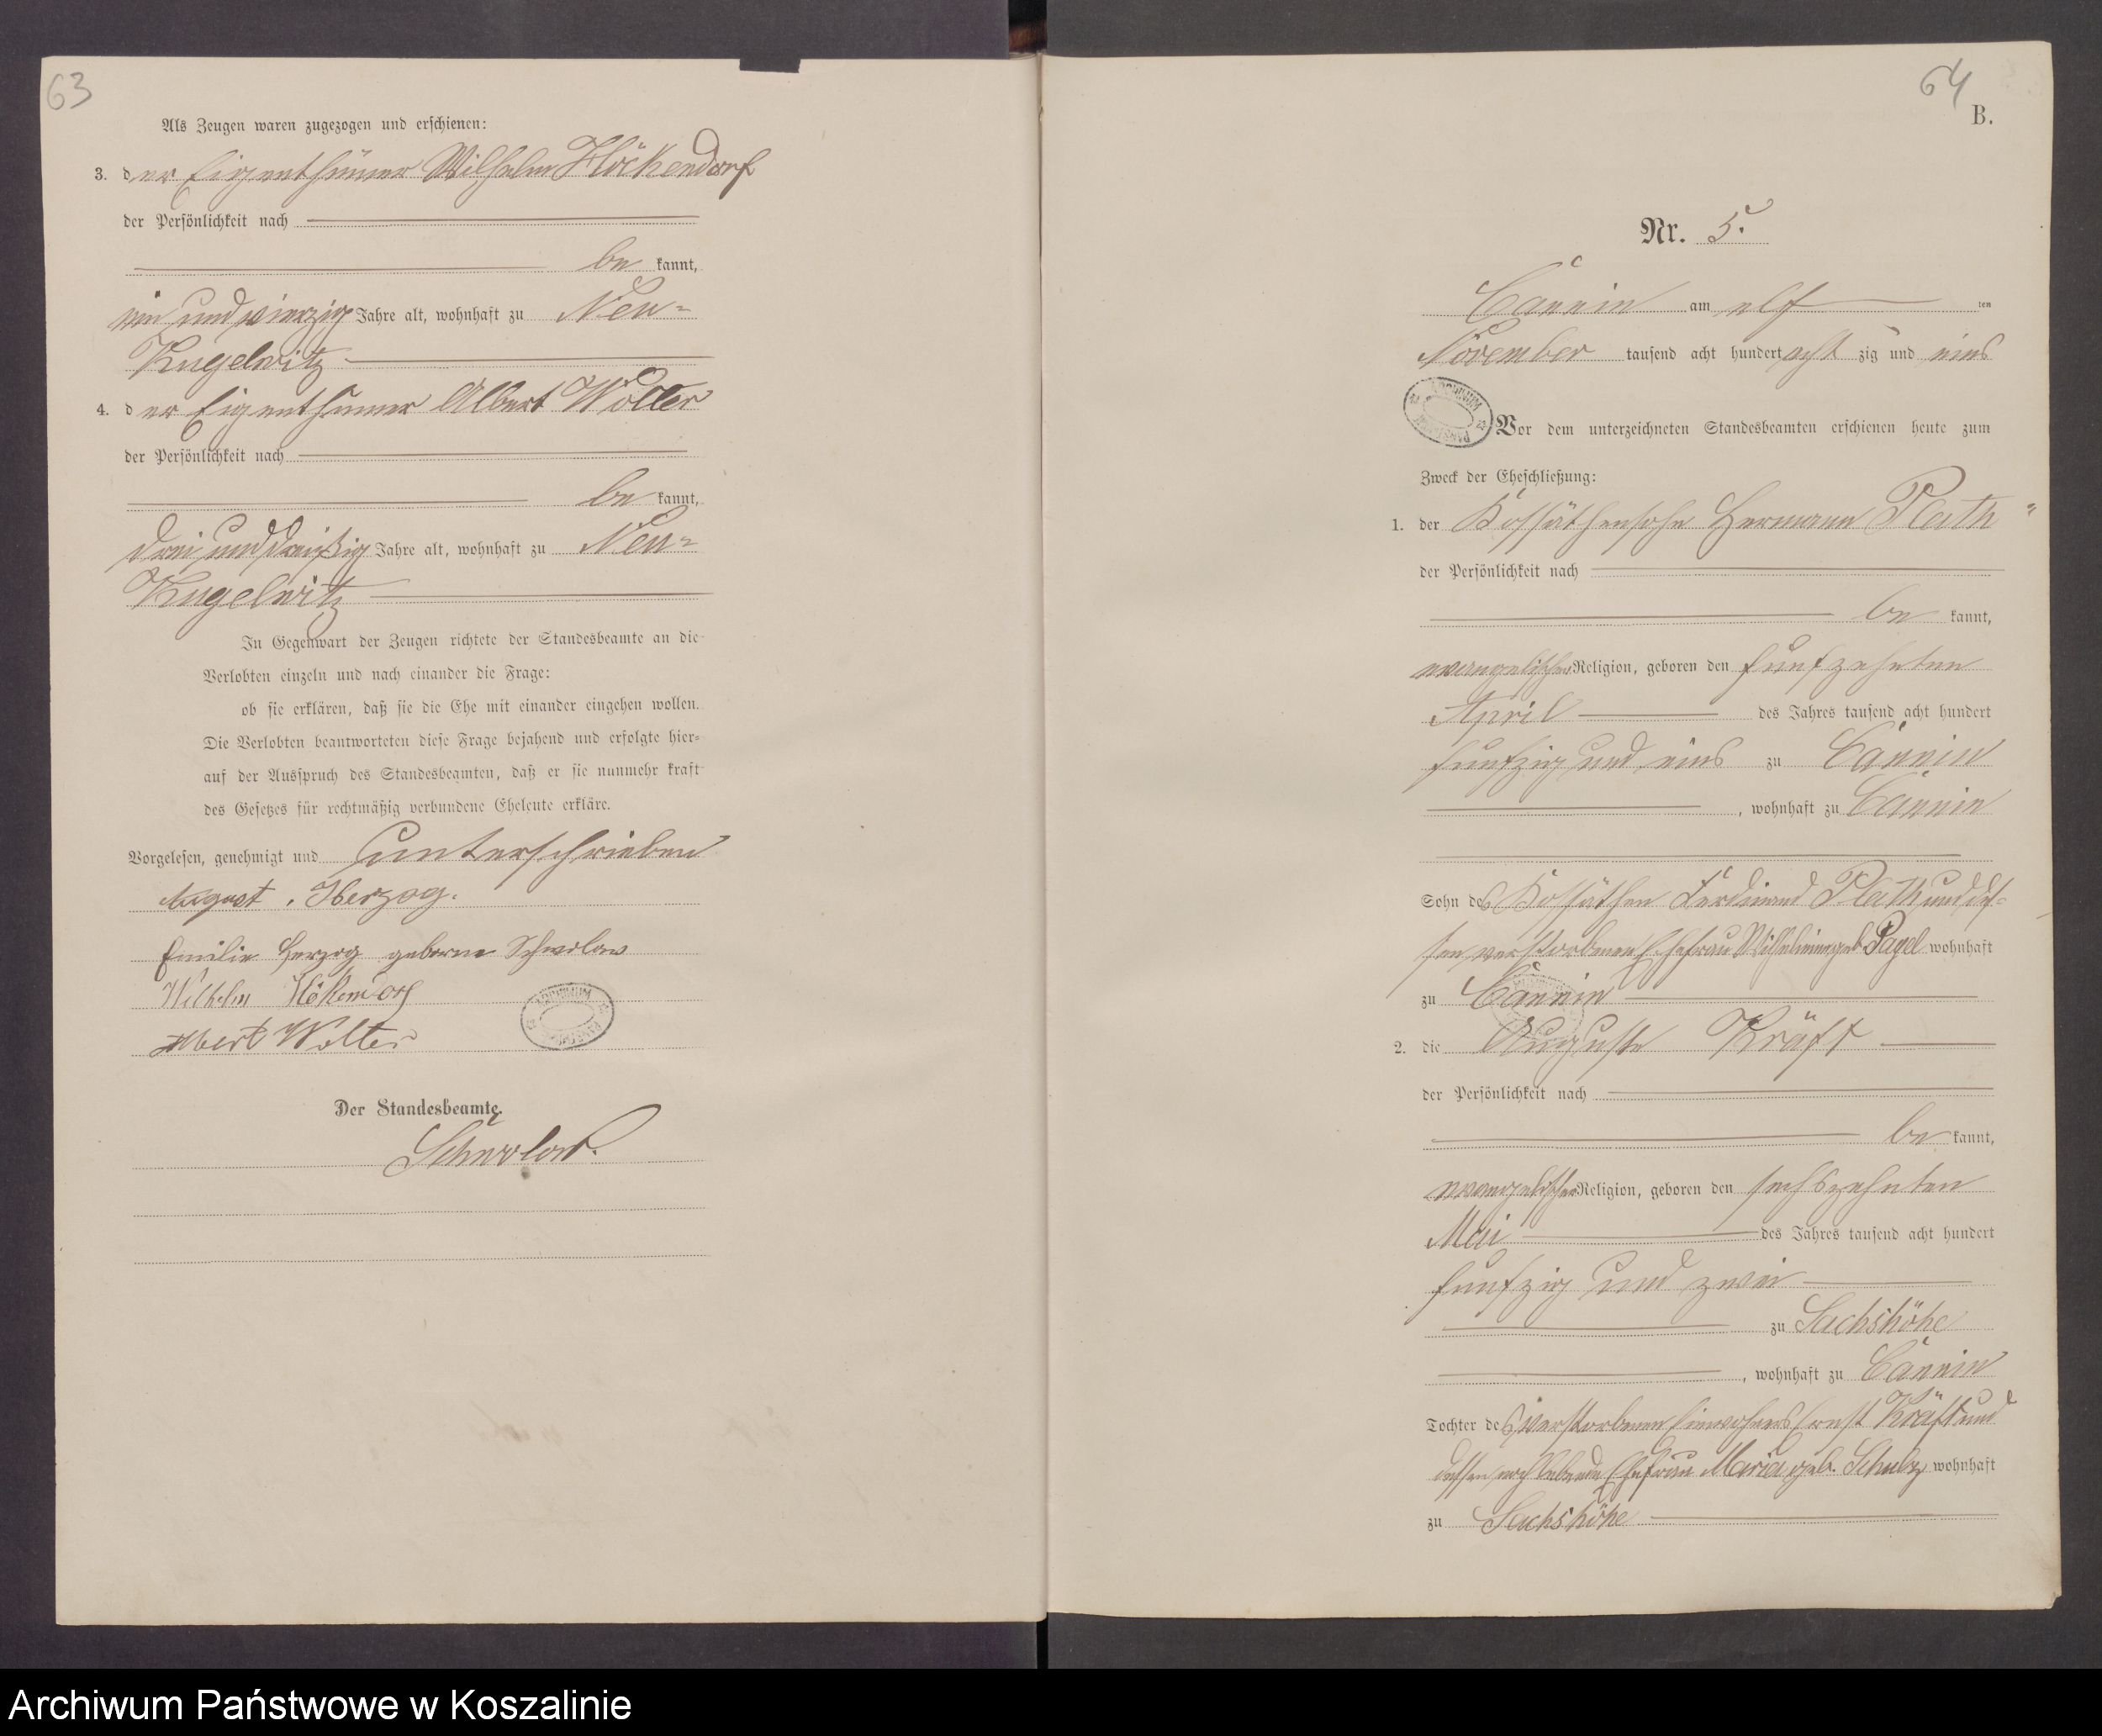 63
Als Zeugen waren zugezogen und erschienen:
3. der Eigenthümer Wilhelm Höckendorf
der Persönlichkeit nach
be kannt,
ein und vierzig Jahre alt, wohnhaft zu Neu-
Kugelwitz
4. der Eigenthümer Albert Wolter
der Persönlichkeit nach
be kannt,
drei und dreißig Jahre alt, wohnhaft zu Neu-
Kugelwitz
In Gegenwart der Zeugen richtete der Standesbeamte an die
Verlobten einzeln und nach einander die Frage:
ob sie erklären, daß sie die Ehe mit einander eingehen wollen.
Die Verlobten beantworteten diese Frage bejahend und erfolgte hier-
auf der Ausspruch des Standesbeamten, daß er sie nunmehr kraft
des Gesetzes für rechtmäßig verbundene Eheleute erkläre.
Vorgelesen, genehmigt und unterschrieben
August Herzog.
Emilie Herzog geborne Schwolow
Wilhelm Hökendorf
Albert Wolter
Der Standesbeamte.
Schwolow.
64
B.
Nr. 5.
Cannin am elf ten
November tausend acht hundert acht zig und eins
Vor dem unterzeichneten Standesbeamten erschienen heute zum
Zweck der Eheschließung:
1. der Kossäthensohn Hermann Plath
der Persönlichkeit nach
be kannt,
evangelischer Religion, geboren den funfzehnten
April des Jahres tausend acht hundert
funfzig und eins zu Cannin
, wohnhaft zu Cannin
Sohn des Kossäthen Ferdinand Plath und des-
sen verstorbenen Ehefrau Wilhelmine geb. Pagel wohnhaft
zu Cannin
2. die Auguste Kräft
der Persönlichkeit nach
be kannt,
evangelischer Religion, geboren den sechszehnten
Mai des Jahres tausend acht hundert
funfzig und zwei
zu Sachshöhe
, wohnhaft zu Cannin
Tochter des verstorbenen Einwohners Ernst Kräft und
dessen noch lebende Ehefrau Maria geb. Schulz wohnhaft
zu Sachshöhe
Archiwum Państwowe w Koszalinie